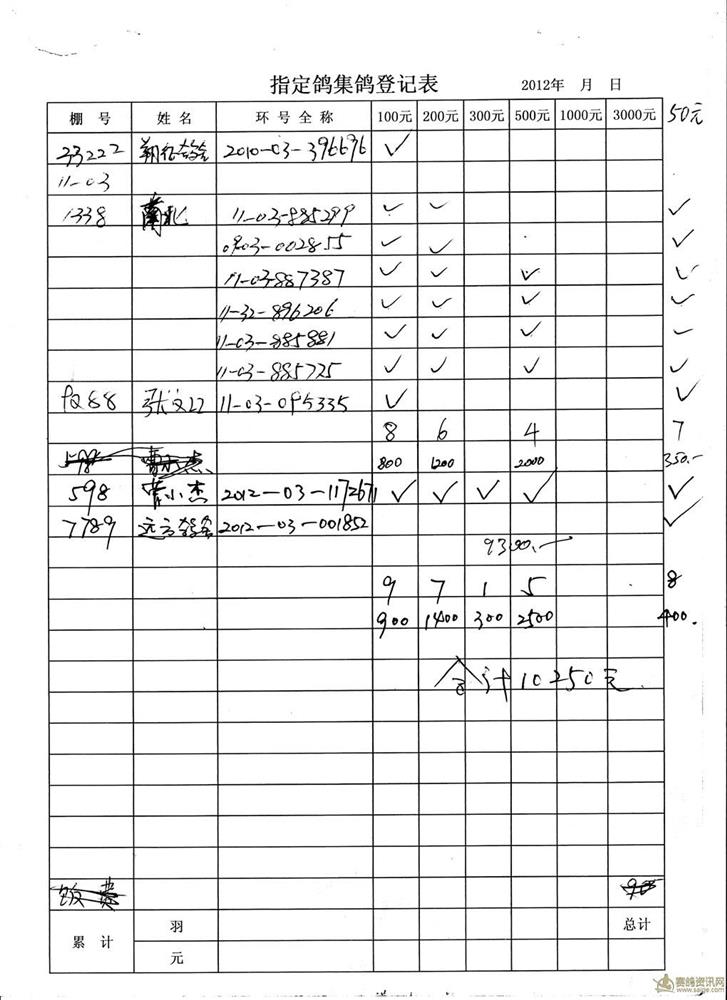 指定鸽集鸽登记表 2012年 月 日
棚号 姓名 环号全称 100元 200元 300元 500元 1000元 3000元 50元
33222 2010-03-396696 ✓
11-03
1338 11-03-885299 ✓ ✓ ✓
0903-002855 ✓ ✓ ✓
11-03-887387 ✓ ✓ ✓ ✓
11-32-896206 ✓ ✓ ✓ ✓
11-03-885881 ✓ ✓ ✓ ✓
11-03-885725 ✓ ✓ ✓ ✓
张文 11-03-095335 ✓ ✓
8 6 4 7
598 曹小杰 800 1200 2000 350.-
598 曹小杰 2012-03-1172671 ✓ ✓ ✓ ✓ ✓
7789 远方 2012-03-001852 ✓
9300.-
9 7 1 5 8
900 1400 300 2500 400.
合计10250元
饭费 90
累计 羽 总计
元
赛鸽资讯网
www.saige.com